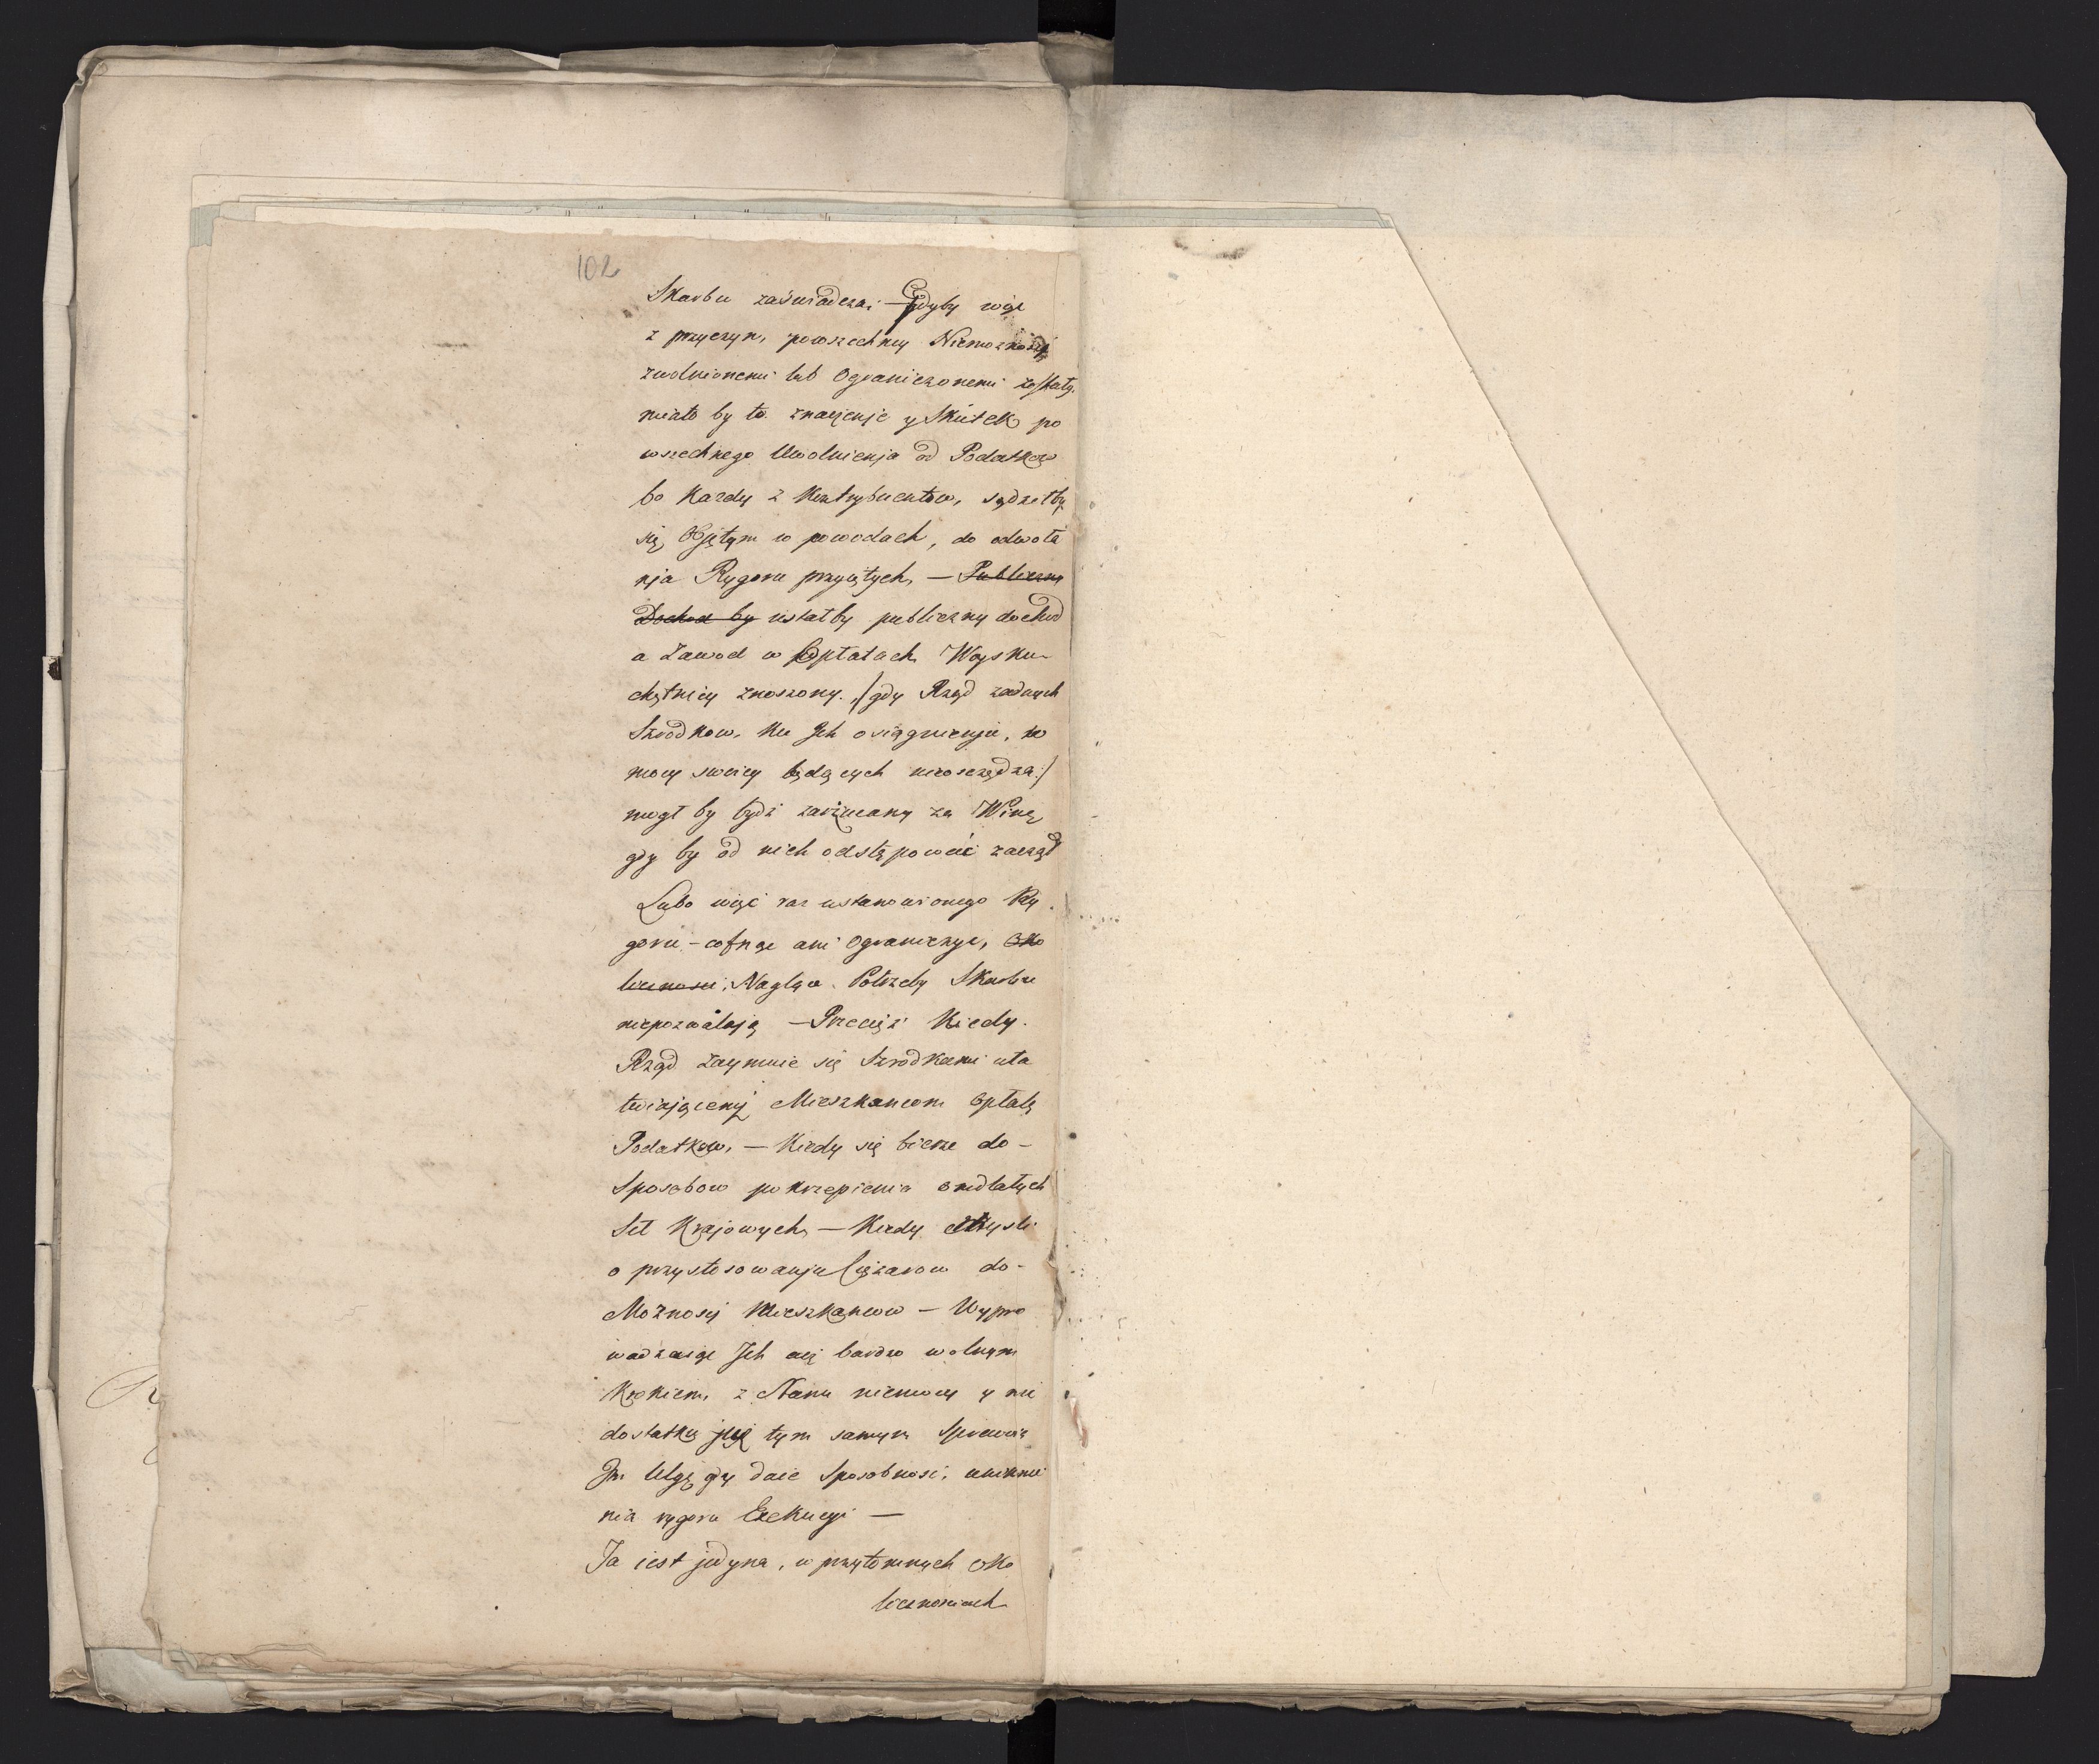 102
Skarbu zaświadcza; — Gdyby więc
z przyczyn, powszechney Niemożnosci
zwolnionemi lub Ograniczonemi zostały.
miało by to znaczenje y Skutek po
wszechnego Uwolnienja od Podatkow
bo Kazdy z Kontrybuentow, sądzełby
się Objętym w powodach, do odwoła
nja Rygoru przyiętych, — Publiczny
Dochod by ustałby publiczny dochod
a Zawod w Opłatach Woysku
chętniey znoszony. /gdy Rząd zadnych
Szrodkow, Ku Ich osiągnienju, w
mocy swoiey będących nieoszczędza:/
mogł by bydź zarzucany za Winę
gdy by od nich odstępować zaczął
Lubo więc raz ustanowionego Ry
goru – cofnąc ani Ograniczyc, Oko
licznosci; Nagląca Potrzeby Skarbu
niepozwalają — Przecięż Kiedy
Rząd Zaymuie się Szrodkami uła
twiającemi Mieszkancom Opłatę
Podatkow, — Kiedy się bierze do –
Sposobow pokrzepienia omdlałych
Sił Krajowych, — Kiedy Myśli
o przystosowanju Ciężarow do –
Możnosci Mieszkancow — Wypro
wadzając Ich acz bardzo wolnym
Krokiem, z Stanu niemocy y nie
dostatku już tym samym Sprawia
Im Ulgę gdy daie Sposobnosc, uniknie
nia rygoru Exekucyi —
Ta iest jedyna, w przytomnych Oko
licznosciach